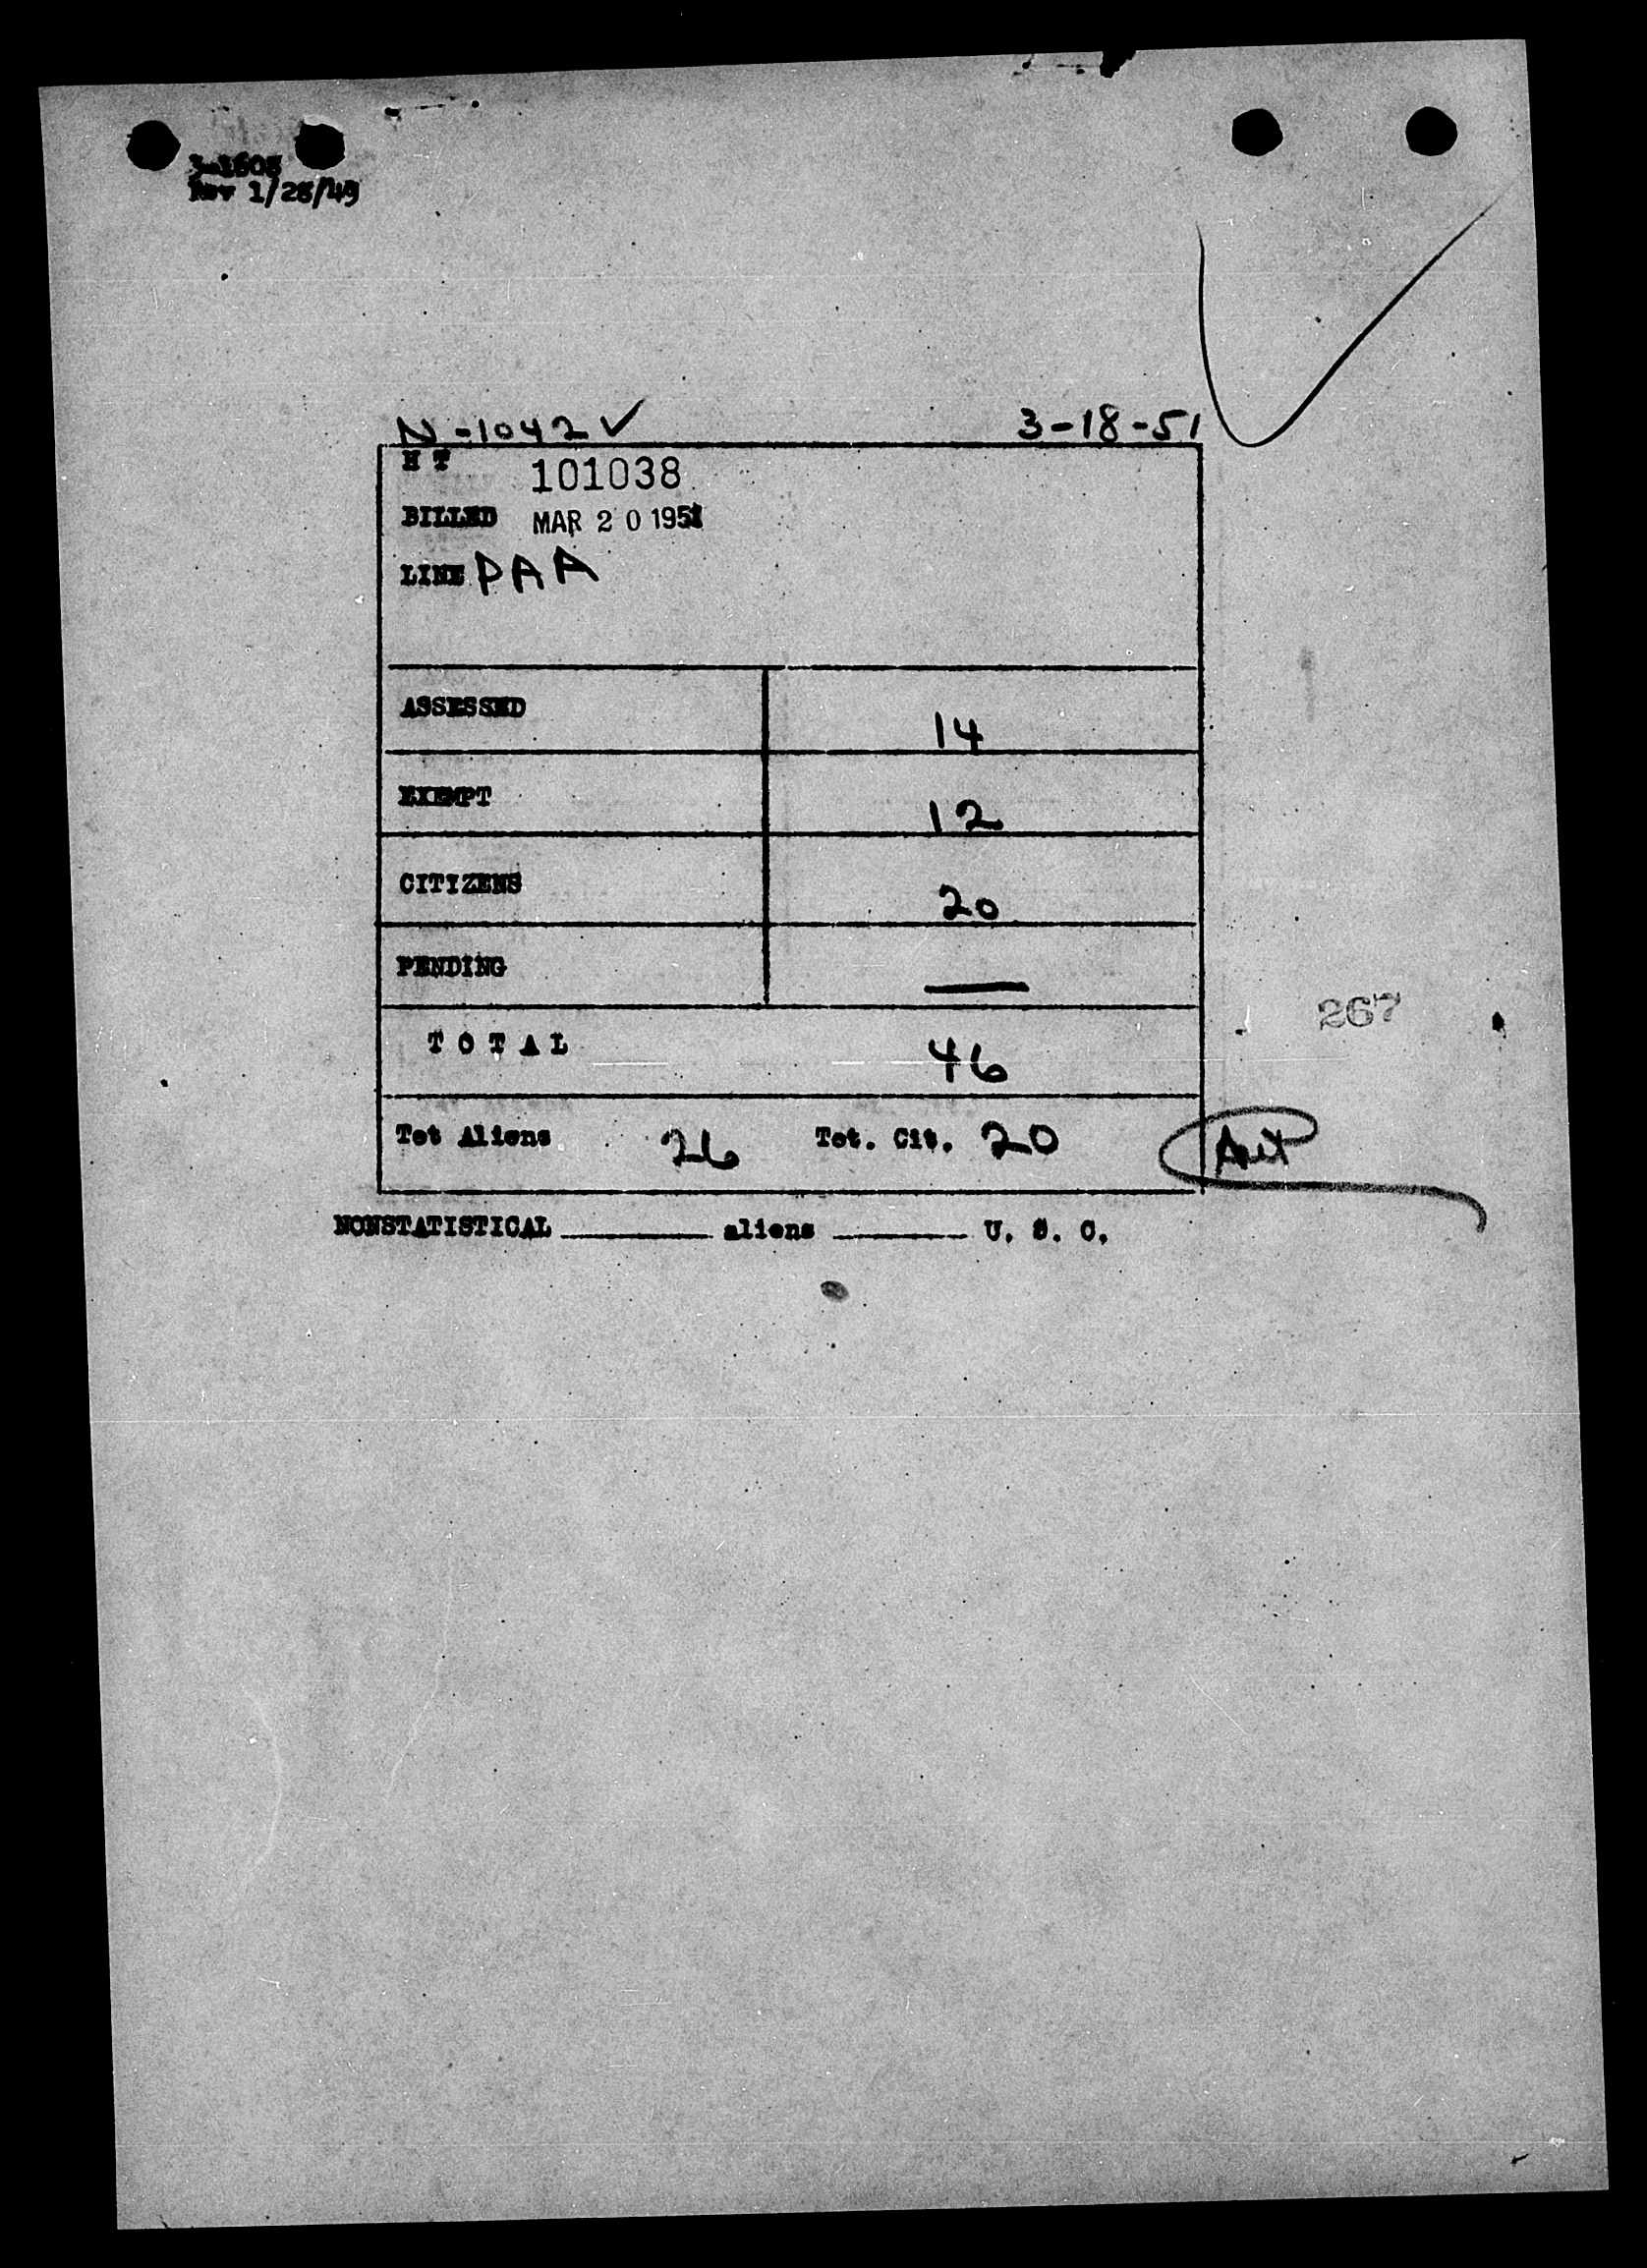 3-1605
Rev 1/28/49
N-1042 ✓ 3-18-51
H T 101038
BILLED MAR 20 1951
LINE PAA
ASSESSED 14
EXEMPT 12
CITIZENS 20
PENDING —
267
TOTAL 46
Tot Aliens 26 Tot. Cit. 20
NONSTATISTICAL ________ aliens ________ U. S. C.